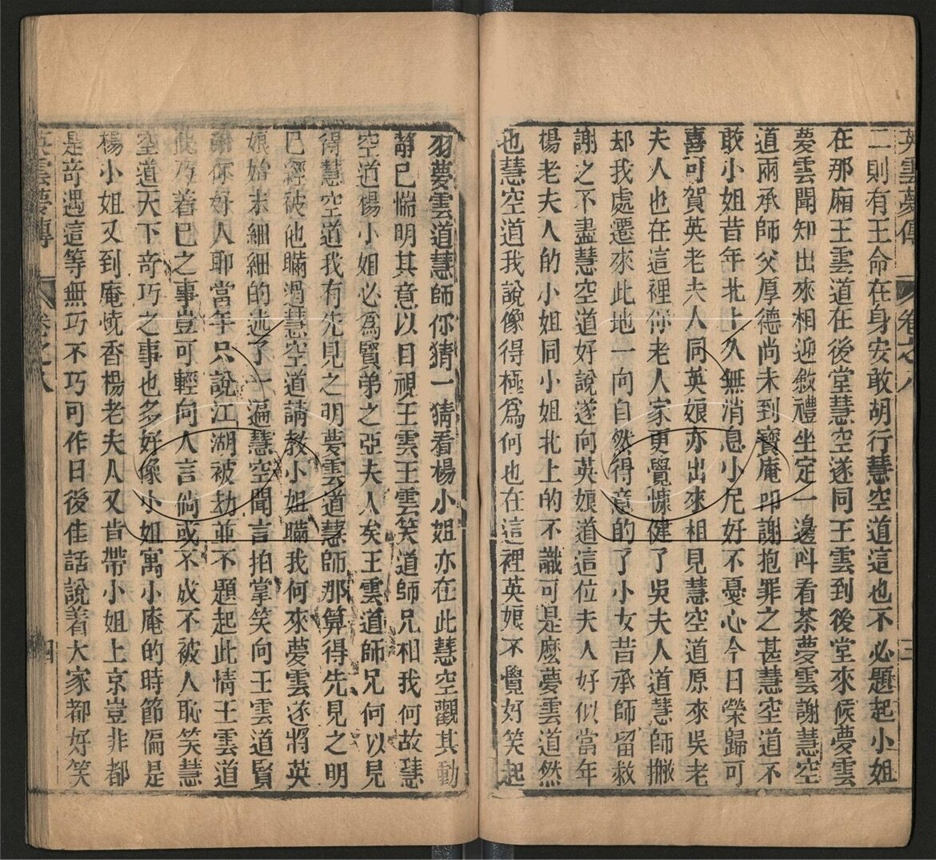 英雲夢傳 卷之八 三
二則有王命在身安敢胡行慧空道這也不必題起小姐
在那廂王雲道在後堂慧空遂同王雲到後堂來候夢雲
夢雲聞知出來相迎敘禮坐定一邊呌看茶夢雲謝慧空
道兩承師父厚德尚未到寳庵叩謝抱罪之甚慧空道不
敢小姐昔年北上久無消息小尼好不憂心今日榮歸可
喜可賀英老夫人同英娘亦出來相見慧空道原來吳老
夫人也在這裡你老人家更覽慷健了吳夫人道慧師撇
却我處遷來此地一向自然得意的了小女昔承師留救
謝之不盡慧空道好說遂向英娘道這位夫人好似當年
楊老夫人的小姐同小姐北上的不識可是麽夢雲道然
也慧空道我說像得極爲何也在這裡英娘不覺好笑起
夢雲道慧師你猜一猜看楊小姐亦在此慧空觀其動
靜已惴明其意以目視王雲王雲笑道師兄相我何故慧
空道楊小姐必爲賢弟之亞夫人矣王雲道師兄何以見
得慧空道我有先見之明夢雲道慧師那算得先見之明
已經被他瞞過慧空道請教小姐瞞我何來夢雲遂將英
娘始末細細的述了一遍慧空聞言拍掌笑向王雲道賢
弟你好人聊當年只說江湖被劫並不題起此情王雲道
此乃着已之事豈可輕向人言倘或不成不被人恥笑慧
空道天下奇巧之事也多好像小姐寓小庵的時節偏是
楊小姐又到庵燒香楊老夫人又肯帶小姐上京豈非都
是奇遇這等無巧不巧可作日後佳話說着大家都好笑
英雲夢傳 卷之八 四